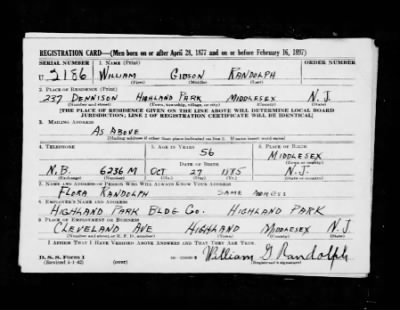 REGISTRATION CARD—(Men born on or after April 28, 1877 and on or before February 16, 1897)
SERIAL NUMBER 1. NAME (Print) ORDER NUMBER
U 2186 WILLIAM GIBSON RANDOLPH
(First) (Middle) (Last)
2. PLACE OF RESIDENCE (Print)
237 DENNISON HIGHLAND PARK MIDDLESEX N.J.
(Number and street) (Town, township, village, or city) (County) (State)
[THE PLACE OF RESIDENCE GIVEN ON THE LINE ABOVE WILL DETERMINE LOCAL BOARD
JURISDICTION; LINE 2 OF REGISTRATION CERTIFICATE WILL BE IDENTICAL]
3. MAILING ADDRESS
AS ABOVE
[Mailing address if other than place indicated on line 2. If same insert word same]
4. TELEPHONE 5. AGE IN YEARS 6. PLACE OF BIRTH
56 MIDDLESEX
DATE OF BIRTH (Town or county)
N.B. 6236 M OCT 27 1885 N.J.
(Exchange) (Number) (Mo.) (Day) (Yr.) (State or country)
7. NAME AND ADDRESS OF PERSON WHO WILL ALWAYS KNOW YOUR ADDRESS
FLORA RANDOLPH SAME ADDRESS
8. EMPLOYER'S NAME AND ADDRESS
HIGHLAND PARK BLDG CO. HIGHLAND PARK
9. PLACE OF EMPLOYMENT OR BUSINESS
CLEVELAND AVE HIGHLAND MIDDLESEX N.J.
(Number and street or R. F. D. number) (Town) (County) (State)
I AFFIRM THAT I HAVE VERIFIED ABOVE ANSWERS AND THAT THEY ARE TRUE.
D. S. S. Form 1 William G Randolph
(Revised 4-1-42) (over) (Registrant's signature)